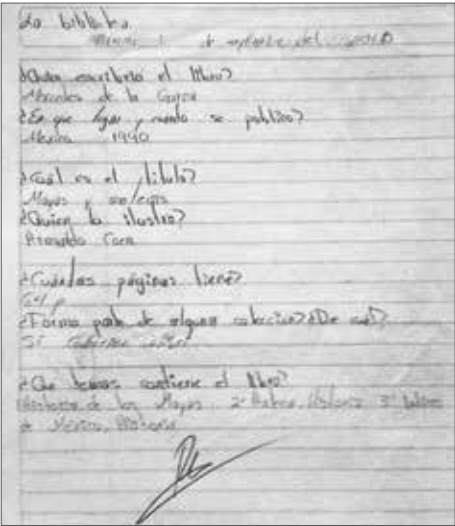 La biblioteca
1 de septiembre del 2010
¿Quien escribió el libro?
Mercedes de la Garza
¿En que lugar y cuando se publico?
Mexico 1990
¿Cual es el titulo?
Mayas y
¿Quien lo ilustro?
¿Cuántas páginas tiene?
¿Forma parte de alguna coleccion? ¿De cual?
Sí
¿Que temas contiene el libro?
Historia de los Mayas 2° Historia 3°
de México, Historia